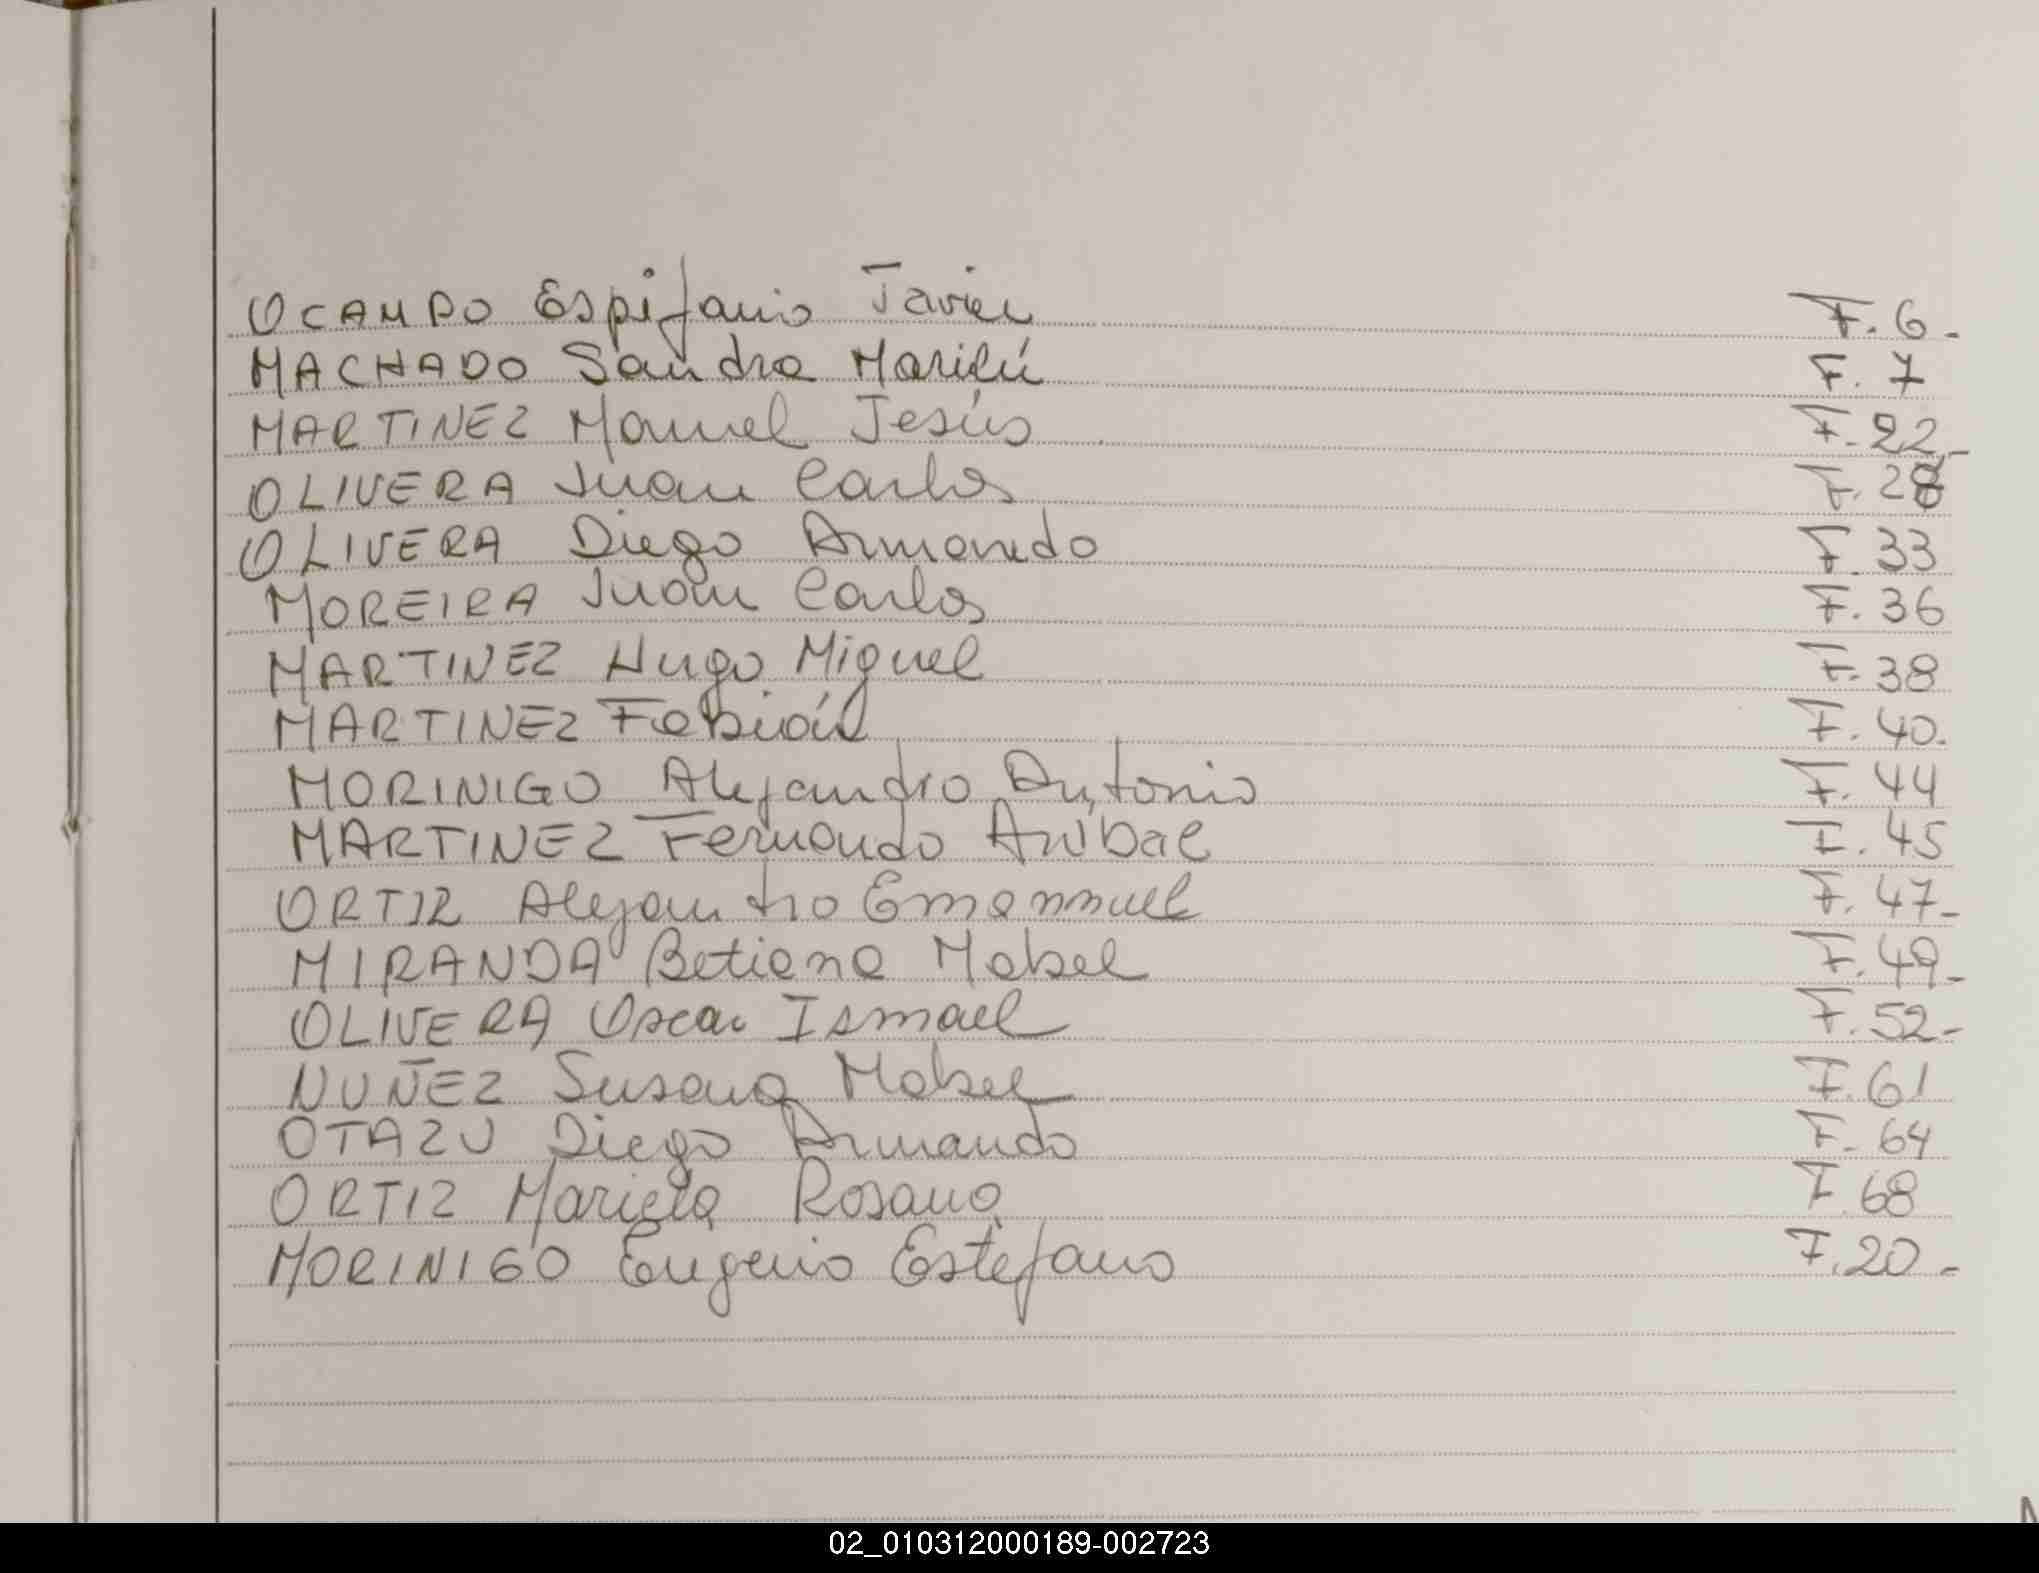 OCAMPO Espifanio Javier F. 6-
MACHADO Sandra Marilú F. 7
MARTINEZ Manuel Jesús F. 22-
OLIVERA Juan Carlos F.
OLIVERA Diego Armando F. 33
MOREIRA Juan Carlos F. 36
MARTINEZ Hugo Miguel F. 38
MARTINEZ Fabián F. 40.
MORINIGO Alejandro Antonio F. 44
MARTINEZ Fernando Anibal F. 45
ORTIZ Alejandro Emanmuel F. 47-
MIRANDA Betiana Mabel F. 49-
OLIVERA Oscar Ismael F. 52-
NUÑEZ Susana Mabel F. 61
OTAZU Diego Armando F. 64
ORTIZ Mariela Rosana F 68
MORINIGO Eugenio Estefano F. 20-
02_010312000189-002723